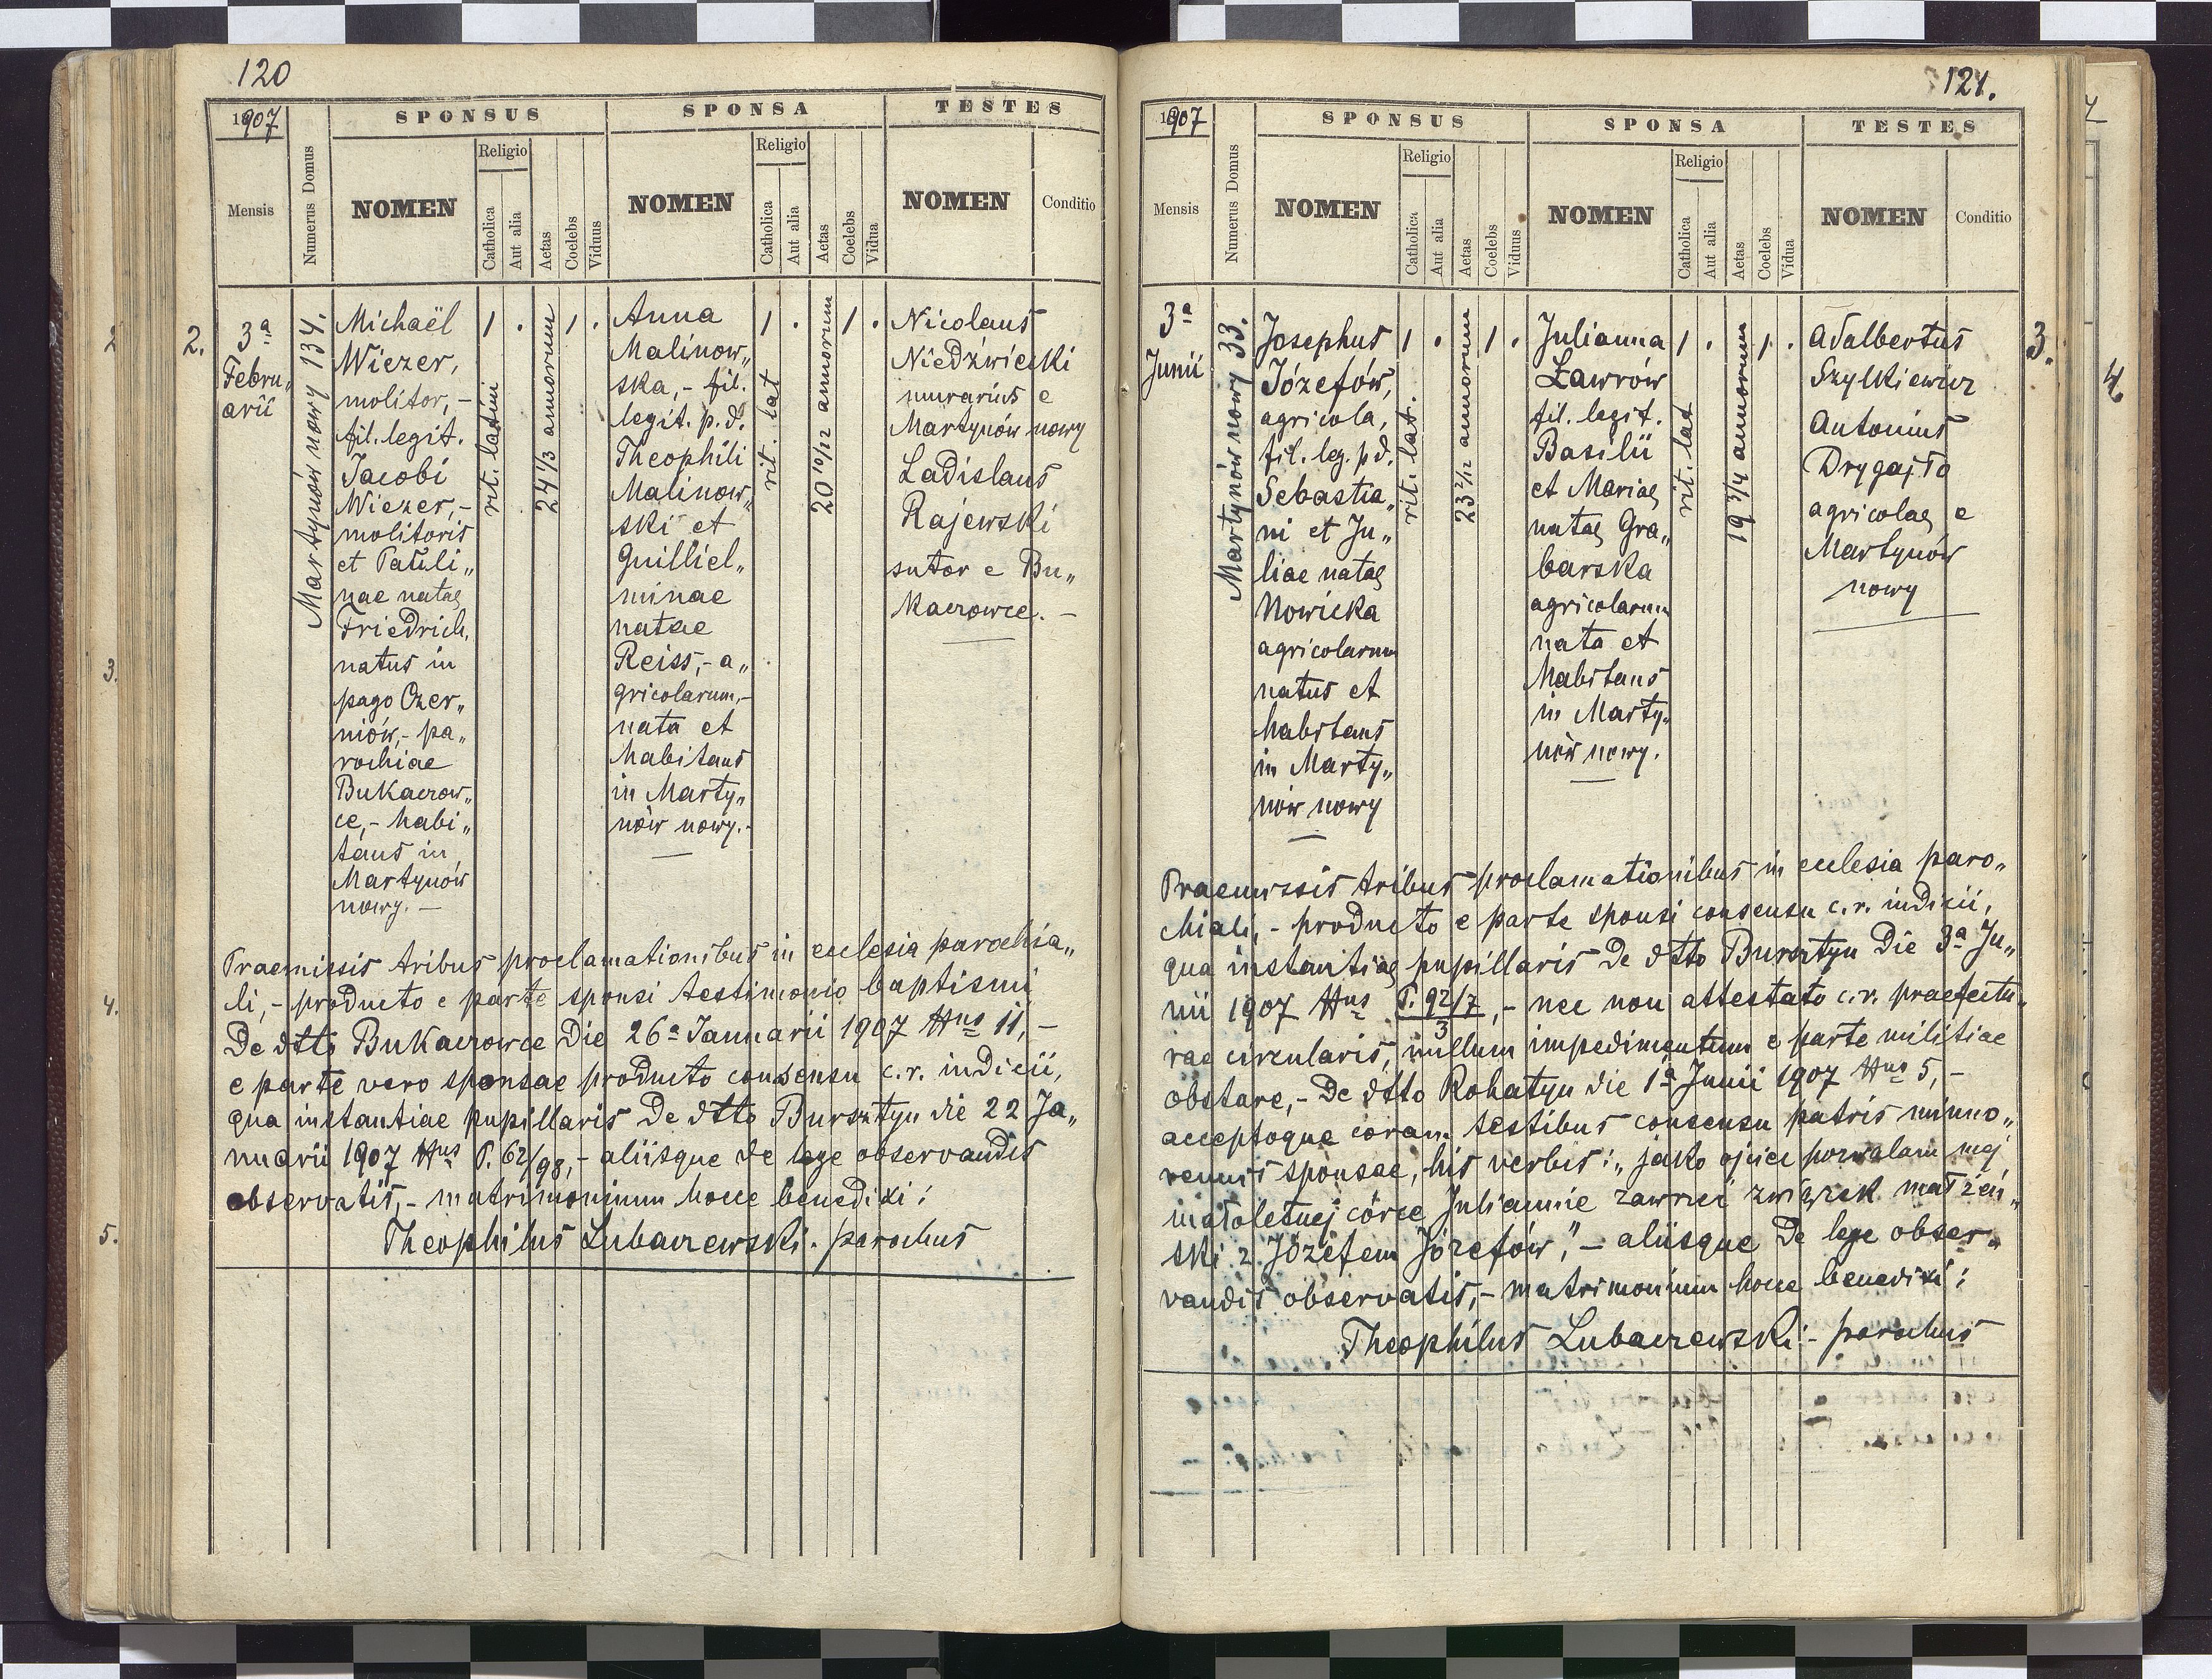 120
1907
SPONSUS
SPONSA
TESTES
Mensis
Numerus Domus
NOMEN
Religio
Catholica
Aut alia
Aetas
Coelebs
Viduus
NOMEN
Religio
Catholica
Aut alia
Aetas
Coelebs
Vidua
NOMEN
Conditio
2.
3ª
Febru„
arii
Martynów nowy 134.
Michaël
Wiezer,
molitor,-
fil. legit.
Jacobi
Wiezer,-
molitoris
et Pauli„
nae natae
Friedrich,
natus in
pago Czer„
niów,- pa„
rochiae
Bukaczow„
ce,- habi„
tans in
Martynów
nowy.-
1
.
rit. latini
24 1/3 annorum
1
.
Anna
Malinow„
ska,- fil.
legit. p.d.
Theophili
Malinow„
ski et
Guilliel„
minae
natae
Reiss,- a„
gricolarum,-
nata et
habitans
in Marty„
nów nowy.-
1
.
rit. lat
20 10/12 annorum
1
.
Nicolaus
Niedźwiecki
murarius e
Martynów nowy
Ladislaus
Rajewski
sutor e Bu„
kaczowce.-
Praemissis tribus proclamationibus in ecclesia parochia„
li,- producto e parte sponsi testimonio baptismi
de dtto Bukaczowce die 26ª Januarii 1907 Nus 11,-
e parte vero sponsae producto consensu c.r. iudicii,
qua instantiae pupillaris de dtto Bursztyn die 22 Ja„
nuarii 1907 Nus P. 62/98,- aliisque de lege observandis
observatis,- matrimonium hocce benedixi:
Theophilus Lubaczewski. parochus
121.
1907
SPONSUS
SPONSA
TESTES
Mensis
Numerus Domus
NOMEN
Religio
Catholica
Aut alia
Aetas
Coelebs
Viduus
NOMEN
Religio
Catholica
Aut alia
Aetas
Coelebs
Vidua
NOMEN
Conditio
3ª
Junii
Martynów nowy 33.
Josephus
Józefów,
agricola,
fil. leg. p d.
Sebastia„
ni et Ju„
liae natae
Nowicka
agricolarum
natus et
habitans
in Marty„
nów nowy
1
.
rit. lat.
23 2/12 annorum
1
.
Julianna
Ławrów
fil. legit.
Basilii
et Mariae
natae Gra„
barska
agricolarum
nata et
habitans
in Marty„
nów nowy.
1
.
rit. lat
19 3/4 annorum
1
.
Adalbertus
Szylkiewicz
Antonius
Drygajło
agricolae e
Martynów
nowy
3.
Praemissis tribus proclamationibus in ecclesia paro„
chiali,- producto e parte sponsi consensu c.r. iudicii,
qua instantiae pupillaris de dtto Bursztyn die 3ª Ju„
nii 1907 Nus P. 92/7
3
,- nec non attestato c.r. praefectu„
rae circularis, nullum impedimentum e parte militiae
obstare,- de dtto Rohatyn die 1ª Junii 1907 Nus 5,-
acceptoque coram testibus consensu patris minno„
rennis sponsae, his verbis: „jako ojciec pozwalam mej
małoletniej córce Juliannie zawrzeć związek małżeń„
ski z Józefem Józefów",- aliisque de lege obser„
vandis observatis,- matrimonium hocce benedixi:
Theophilus Lubaczewski:- parochus
2
3.
4.
5.
4.